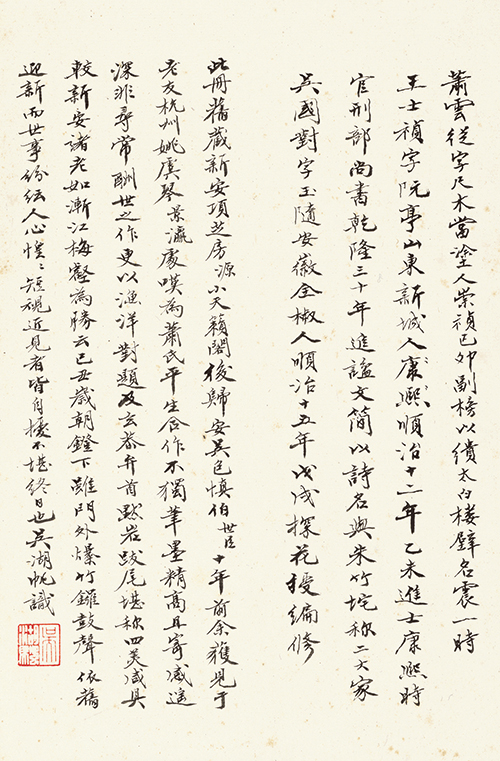 蕭雲從字尺木當塗人崇禎己卯副榜以繢太白樓壁名震一時
王士禎字阮亭山東新城人康熙順治十二年乙未進士康熙時
官刑部尚書乾隆三十年進謚文簡以詩名與朱竹垞稱二大家
吳國對字玉隨安徽全椒人順治十五年戊戌探花授編修
此冊舊藏新安項芝房源小天籟閣後歸安吳邑慎伯世臣十年前余獲見于
老友杭州姚虞琴景瀛處嘆為蕭氏平生合作不獨筆墨精高且寄感遥
深非尋常酬世之作更以漁洋對題及玄蒼弁首默岩跋尾堪称四美咸具
較新安諸老如漸江梅壑為勝云己丑歲朝鐙下雖門外爆竹鑼鼓聲依舊
迎新而世事紛紜人心惶〻短視近見者皆自擾不堪終日也吳湖帆識
吳湖帆